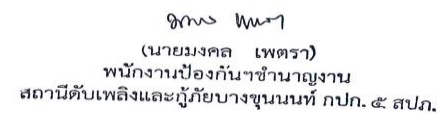 (นายมงคล เพตรา)
พนักงานป้องกันฯชำนาญงาน
สถานีดับเพลิงและกู้ภัยบางขุนนนท์ กปก. ๕ สปภ.